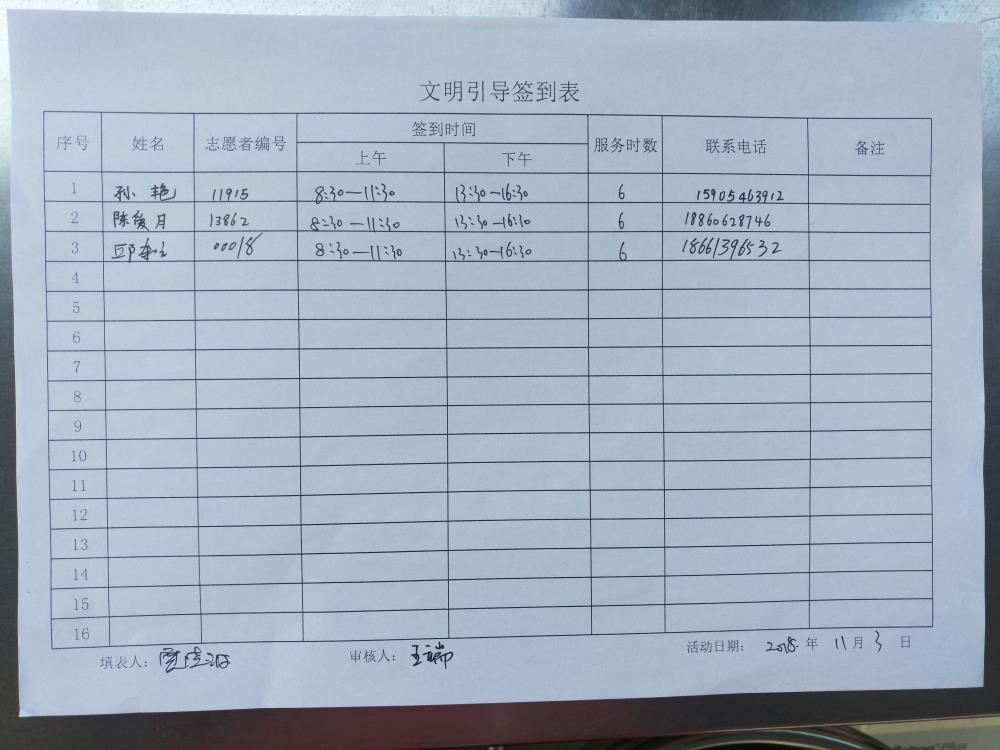 文明引导签到表
序号 姓名 志愿者编号 签到时间 服务时数 联系电话 备注
上午 下午
1 孙艳 11915 8:30—11:30 13:30—16:30 6 15905463912
2 陈爱月 13862 8:30—11:30 13:30—16:30 6 18860628746
3 00018 8:30—11:30 13:30—16:30 6 18661396532
4
5
6
7
8
9
10
11
12
13
14
15
16
填表人: 审核人: 王瑞 活动日期: 2018 年 11 月 3 日